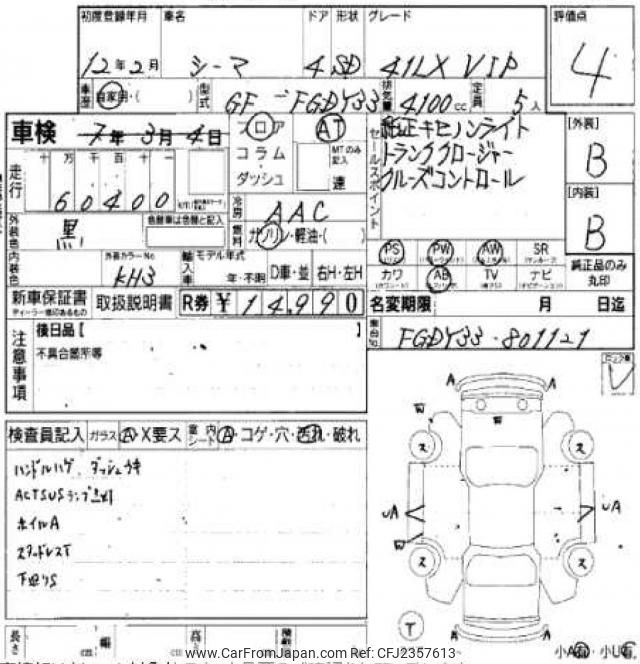 初度登録年月 車名 ドア 形状 グレード 評価点
12年2月 シーマ 4 SD 41LX VIP 4
車歴 自家用・( ) 型式 GF-FGDY33 排気量 4100cc 定員 5人
車検 7年3月4日 フロア AT セールスポイント 純正キセノンライト [外装]
コラム MTのみ記入 トランククロージャー B
走行 十万千百十一 ダッシュ 速 クルーズコントロール
60400 冷房 AAC [内装]
外装色 黒 色替車は色替と記入 燃料 ガソリン・軽油・( ) B
PS PW AW SR
内装色 外装カラーNo KH3 輸入車 モデル年式 年・不明 D車・並 右H・左H カワ AB TV ナビ 純正品のみ丸印
新車保証書 取扱説明書 R券 ¥14,990 名変期限 月 日迄
ディーラー捺印あるもの
後日品[ 車台No. FGDY33-801121
注意事項 不具合箇所等
検査員記入 ガラス A・X要ス 室内シート A・コゲ・穴・汚れ・破れ
ハンドルハゲ、ダッシュウキ
ACTSUSランプ点灯
ホイルA
スタッドレスT
下廻りS
A A
W W
ス ス
UA UA
W
ス ス
T A A
長さ cm 幅 cm 高
小A 小U
www.CarFromJapan.com - CFJ2357613